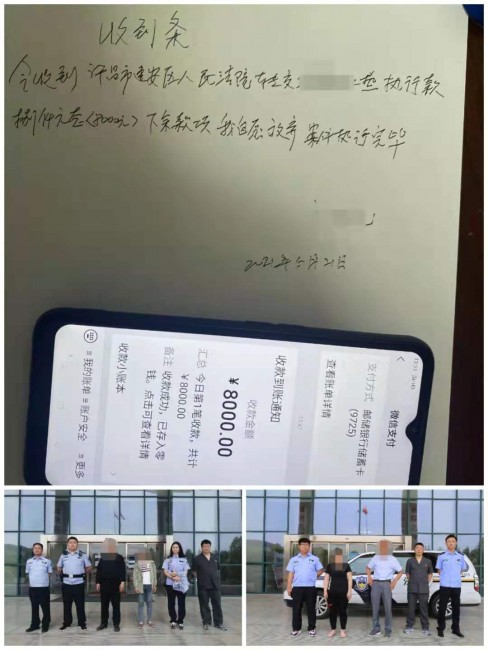 收到条
今收到 许昌市建安区人民法院 转交 执行款
捌仟元整(8000元) 下余款项 我自愿放弃 案件执行完毕
2021年 月21日
微信支付
支付方式 邮储银行储蓄卡
(9725)
查看账单详情
收款到账通知
收款金额
¥8000.00
汇总 今日第1笔收款,共计
¥8000.00
备注 收款成功,已存入零
钱。点击可查看详情
收款小账本
≡我的账单
≡账户安全
≡更多